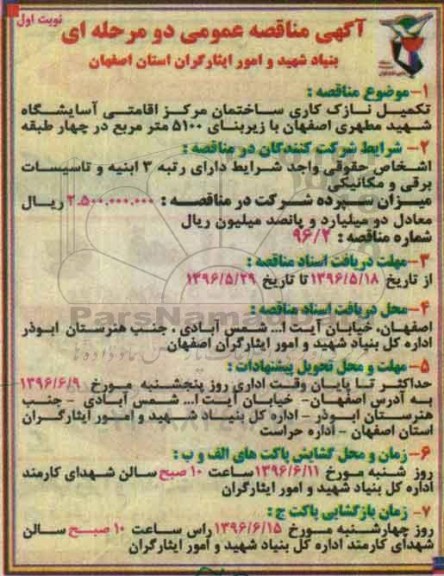 نوبت اول
آگهی مناقصه عمومی دو مرحله ای
بنیاد شهید و امور ایثارگران استان اصفهان
۱- موضوع مناقصه :
تکمیل نازک کاری ساختمان مرکز اقامتی آسایشگاه
شهید مطهری اصفهان با زیربنای ۵۱۰۰ متر مربع در چهار طبقه
۲- شرایط شرکت کنندگان در مناقصه :
اشخاص حقوقی واجد شرایط دارای رتبه ۳ ابنیه و تاسیسات
برقی و مکانیکی
میزان سپرده شرکت در مناقصه : ۲.۵۰۰.۰۰۰.۰۰۰ ریال
معادل دو میلیارد و پانصد میلیون ریال
شماره مناقصه : ۹۶/۲
۳- مهلت دریافت اسناد مناقصه :
از تاریخ ۱۳۹۶/۵/۱۸ تا تاریخ ۱۳۹۶/۵/۲۹
۴- محل دریافت اسناد مناقصه :
ParsNamad
اصفهان، خیابان آیت ا... شمس آبادی ، جنب هنرستان ابوذر
اداره کل بنیاد شهید و امور ایثارگران اصفهان
۵- مهلت و محل تحویل پیشنهادات :
حداکثر تا پایان وقت اداری روز پنجشنبه مورخ ۱۳۹۶/۶/۹
به آدرس اصفهان- خیابان آیت ا... شمس آبادی - جنب
هنرستان ابوذر - اداره کل بنیاد شهید و امور ایثارگران
استان اصفهان - اداره حراست
۶- زمان و محل گشایش پاکت های الف و ب :
روز شنبه مورخ ۱۳۹۶/۶/۱۱ ساعت ۱۰ صبح سالن شهدای کارمند
اداره کل بنیاد شهید و امور ایثارگران
۷- زمان بازگشایی پاکت ج :
روز چهارشنبه مورخ ۱۳۹۶/۶/۱۵ راس ساعت ۱۰ صبح سالن
شهدای کارمند اداره کل بنیاد شهید و امور ایثارگران